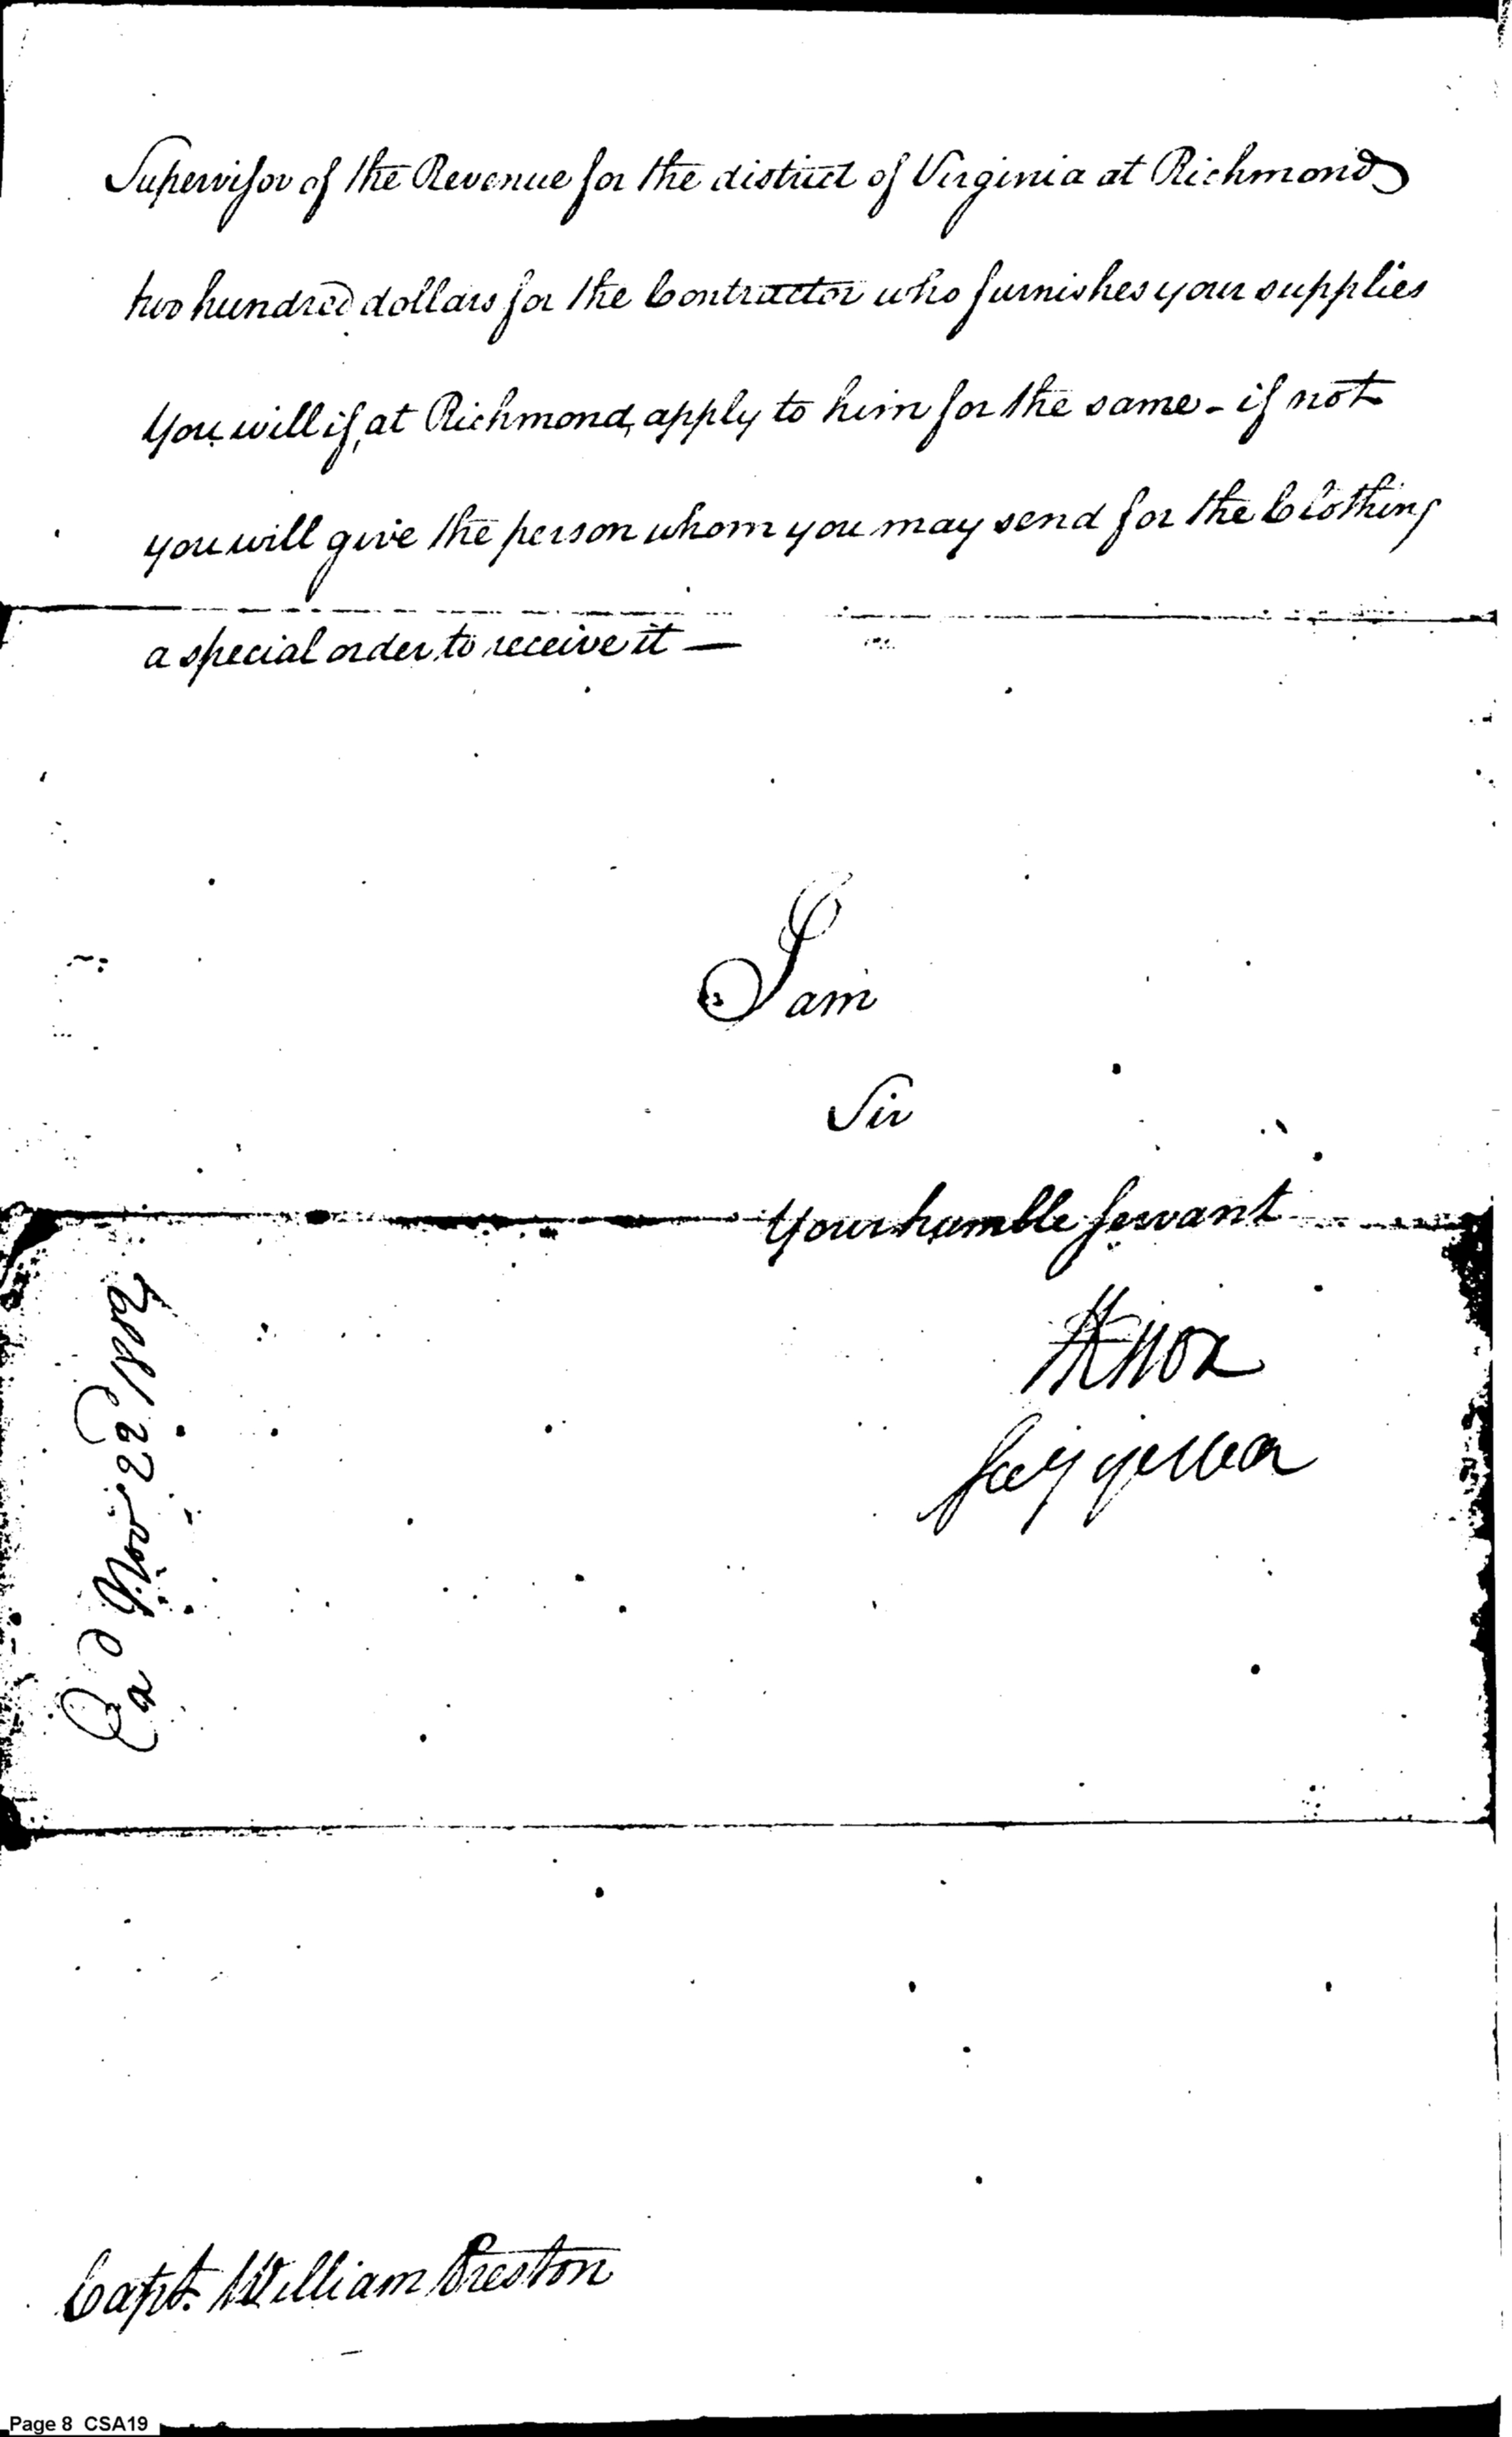 Supervisor of the Revenue for the district of Virginia at Richmond
two hundred dollars for the Contractor who furnishes your supplies
You will if, at Richmond, apply to him for the same - if not
you will give the person whom you may send for the Clothing
a special order to receive it —
I am
Sir
Your humble Servant
HKnox
Secy of war
Nov 22
Capt. William Preston
Page 8 CSA19